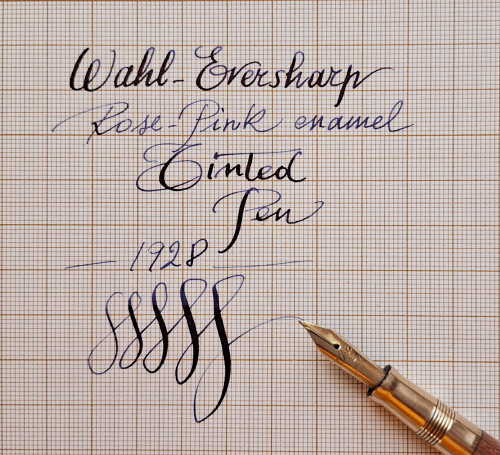 Wahl-Eversharp
Rose-Pink enamel
Tinted
Pen
1928